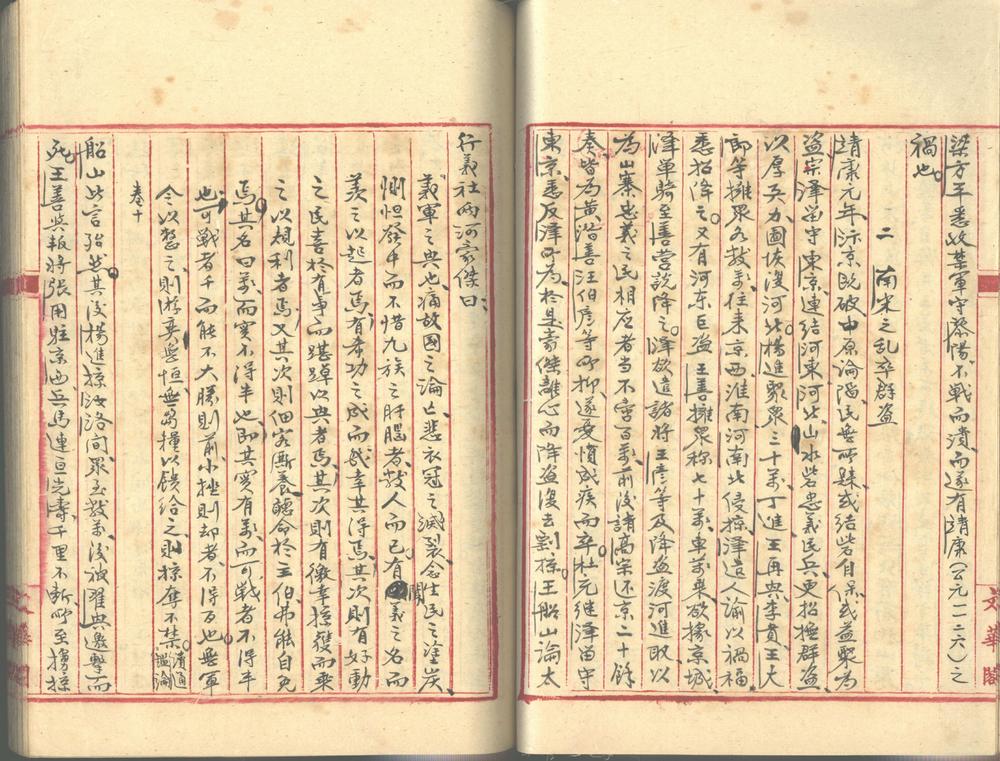 梁方平悉收禁軍守黎陽、不戰而潰、而遂有靖康(公元一一二六)之
禍也。
二 南宋之乱卒群盜
靖康元年、汴京既破、中原淪陷、民無所隸、或結砦自保、或益聚為
盜、宗澤留守東京、連結河東河北山水砦忠義民兵、更招撫群盜
以厚兵力、圖恢復河北。楊進聚眾三十萬、丁進王再興李貴王大
郎等擁眾各數萬、往來京西淮南河南北侵掠、澤遣人諭以禍福
悉招降之。又有河东巨盜王善擁眾称七十萬、車萬乘、欲據京城、
澤單騎至善营說降之。澤欲遣諸將王彥等及降盜渡河進取、以
為山寨忠義之民相应者、当不啻百萬、前後請高宗还京二十餘
奏、皆為黃潛善汪伯彥等所抑、遂憂憤成疾而卒、杜充继澤留守
東京、悉反澤所為、於是豪傑離心、而降盜復去剽掠。王船山論太
行義社两河豪傑曰、
義軍之興也、痛故國之淪亡、悲衣冠之滅裂、念生民之塗炭、
惻怛發中而不惜九族之肝腦者、數人而已。有聞義之名而
羡之以起者焉、有希功之成而幾幸其得焉、其次則有好動
之民、喜於有事而踸踔以興者焉、其次則有徼幸掠獲而乘
之以規利者焉、又其次則佃客廝養聽命於主伯弗能自免
焉。其名曰萬而實不得半也、即其實有萬而可戰者不得千
也。可戰者千、而能不大勝則前、小挫則却者、不得百也。無軍
令以整之、則游弈無恒、無芻糧以餽給之、則掠奪不禁。讀通鑑論
卷十
船山此言殆然。其後楊進掠汝洛间、眾至數萬、後被翟興邀擊而
死、王善與叛將張用駐京西、兵馬連亘、先壽千里不斷、所至擄掠
文華閣